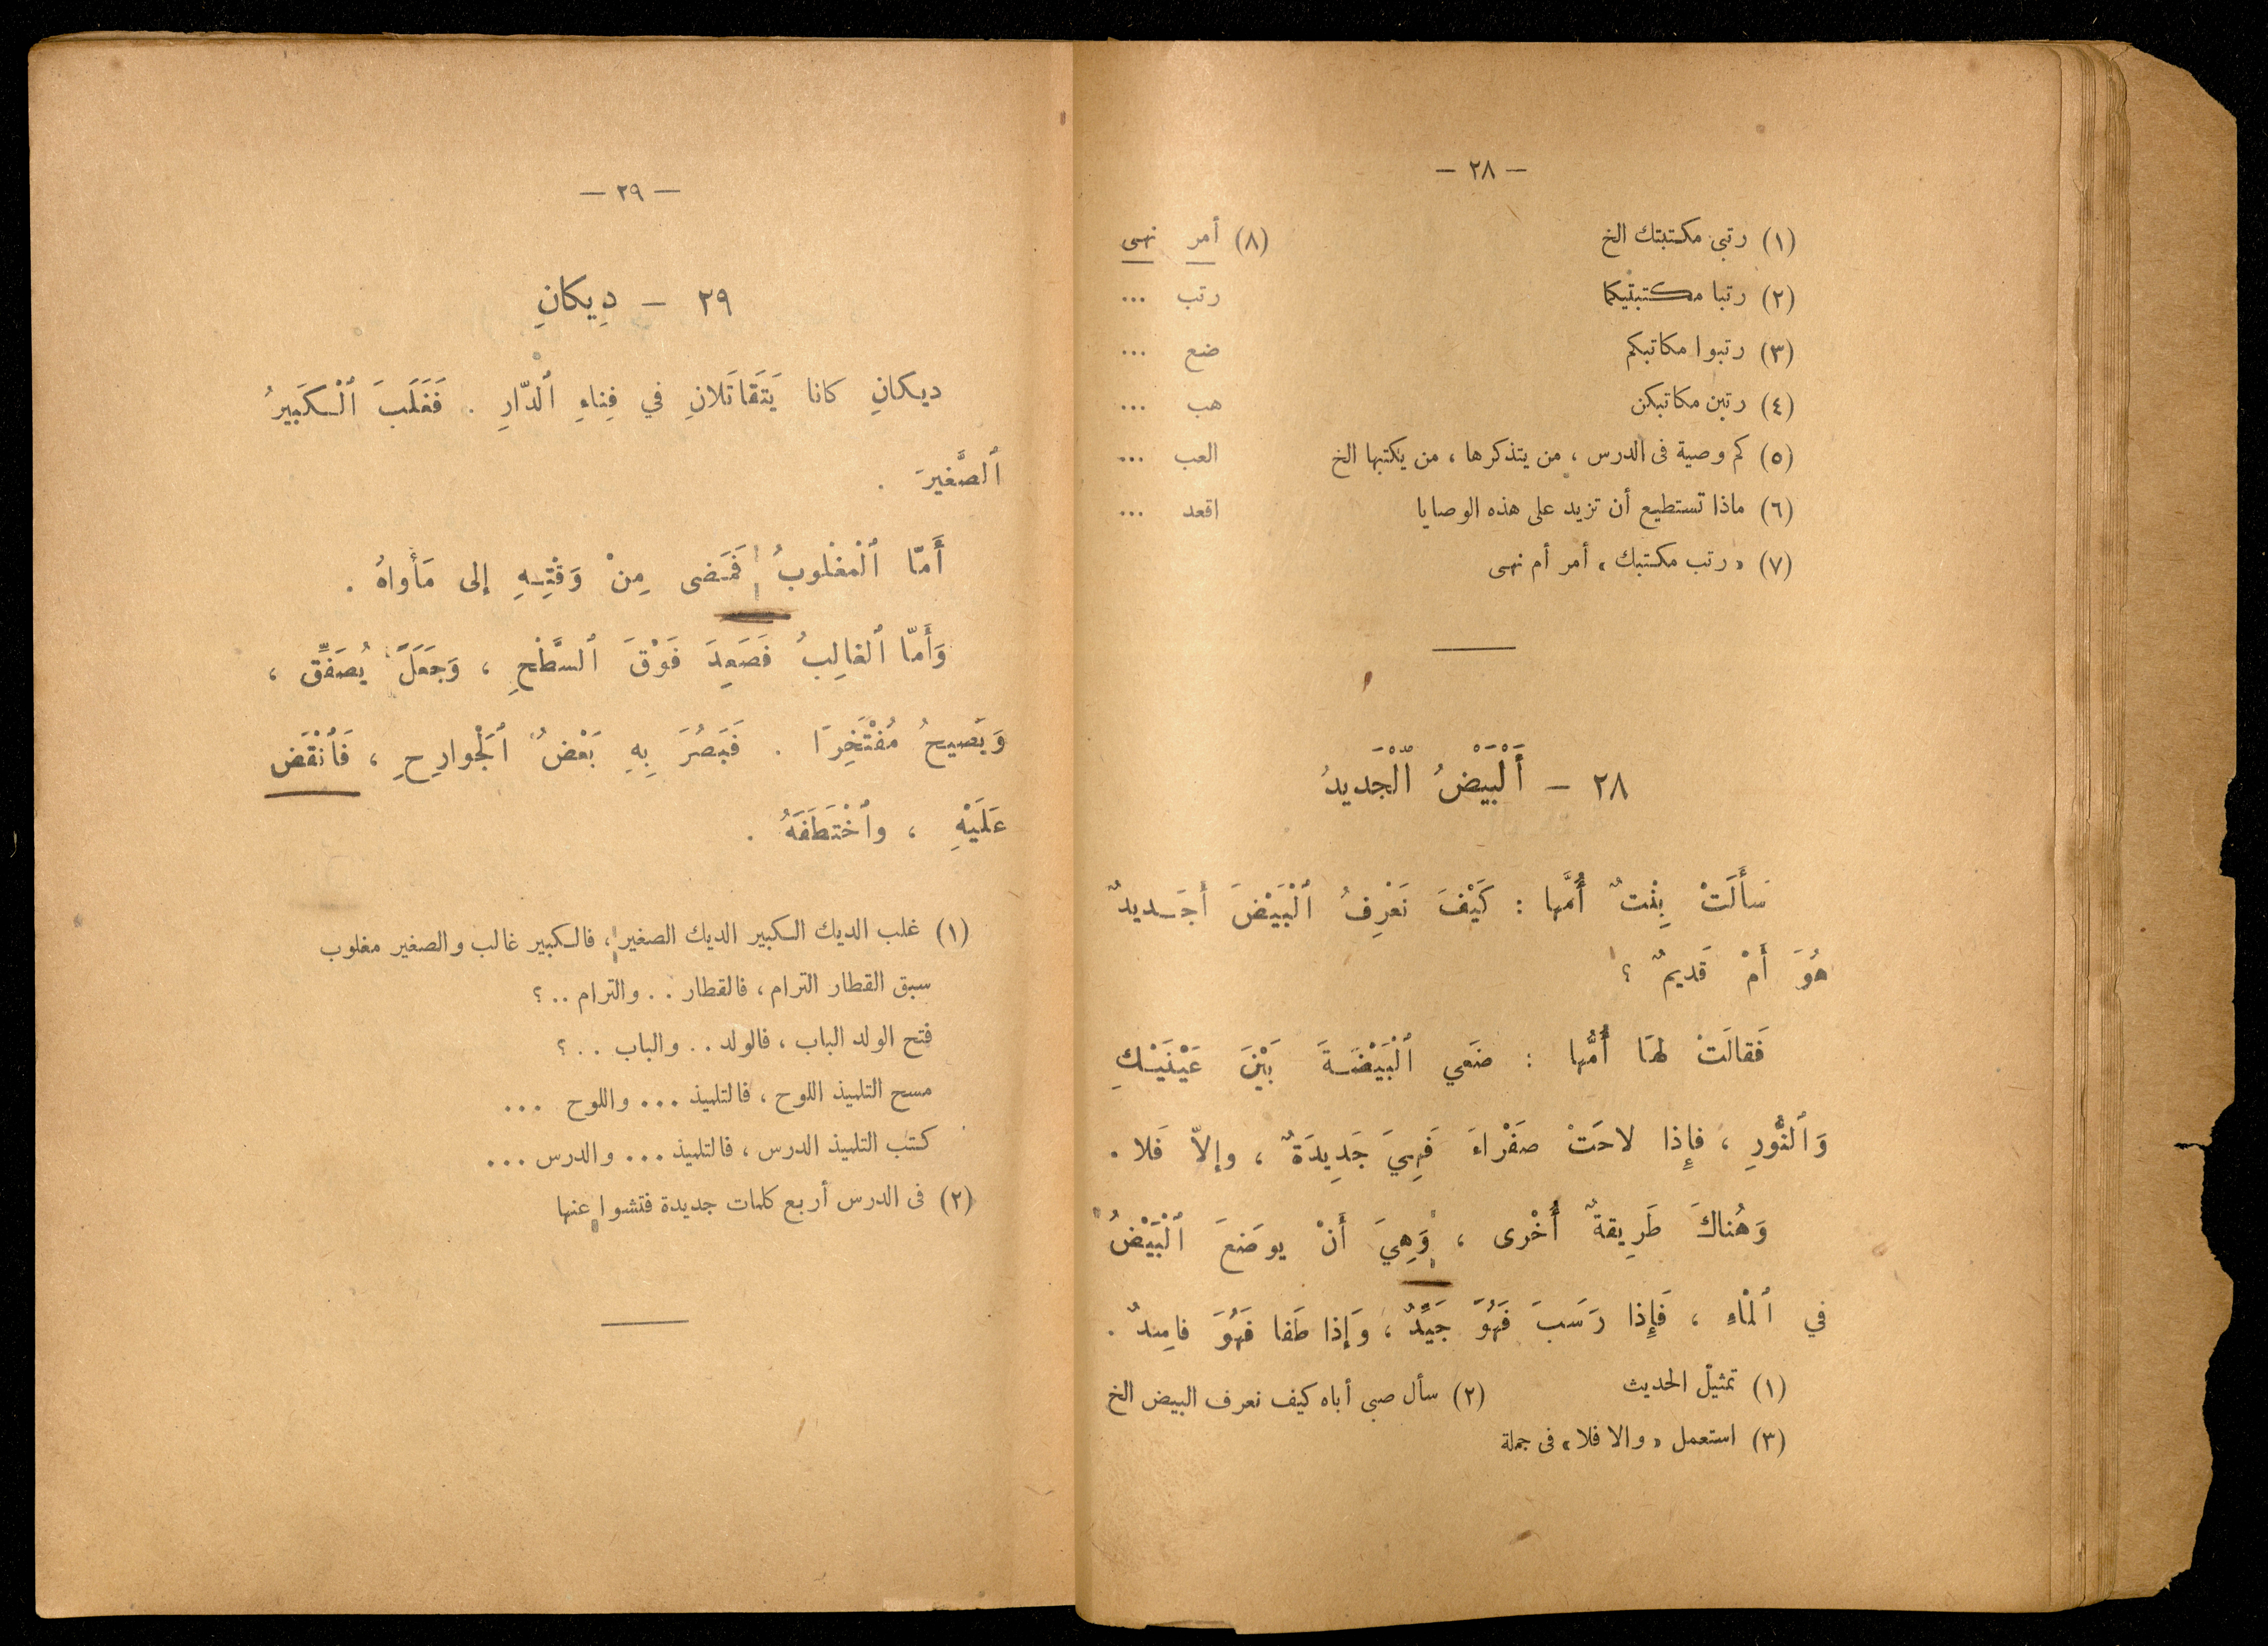 — ٢٨ —
(١) رتبي مكتبتك الخ
(٢) رتبا مكتبتيكما
(٣) رتبوا مكاتبكم
(٤) رتبن مكاتبكن
(٥) كم وصية فى الدرس ، من يتذكرها ، من يكتبها الخ
(٦) ماذا تستطيع أن تزيد على هذه الوصايا
(٧) « رتب مكتبك » أمر أم نهى
(٨) أمر نهى
رتب ...
ضع ...
هب ...
العب ...
اقعد ...
٢٨ — أَلْبَيْضُ ٱلْجَديدُ
سَأَلَتْ بِنْتٌ أُمَّها : كَيْفَ نَعْرِفُ ٱلْبَيْضَ أَجَديدٌ
هُوَ أَمْ قَديمٌ ؟
فَقالَتْ لهَا أُمُّها : ضَعي ٱلْبَيْضَةَ بَيْنَ عَيْنَيْكِ
وَٱلنُّورِ ، فإِذا لاحَتْ صَفْراءَ فَهِيَ جَدِيدَةٌ ، وإلاّ فَلا .
وَهُناكَ طَرِيقةٌ أُخْرى ، وَهِيَ أَنْ يوضَعَ ٱلْبَيْضُ
في ٱلْماءِ ، فَإِذا رَسَبَ فَهُوَ جَيِّدٌ ، وَإِذا طَفا فَهُوَ فاسِدٌ .
(١) تمثيل الحديث (٢) سأل صبى أباه كيف نعرف البيض الخ
(٣) استعمل « والا فلا » فى جملة
— ٢٩ —
٢٩ — دِيكانِ
ديكانِ كانا يَتَقاتَلانِ في فِناءِ ٱلدّارِ . فَغَلَبَ ٱلْكَبيرُ
ٱلصَّغيرَ .
أَمّا ٱلْمَغْلوبُ فَمَضى مِنْ وَقْتِهِ إلى مَأْواهُ .
وَأَمّا ٱلغالِبُ فَصَعِدَ فَوْقَ ٱلسَّطْحِ ، وَجَعَلَ يُصَفِّق ،
وَيَصيحُ مُفْتَخِرًا . فَبَصُرَ بِهِ بَعْضُ ٱلْجَوارِحِ ، فَٱنْقَضَّ
عَلَيْهِ ، وٱخْتَطَفَهُ .
(١) غلب الديك الكبير الديك الصغير ، فالكبير غالب والصغير مغلوب
سبق القطار الترام ، فالقطار . . والترام . . ؟
فتح الولد الباب ، فالولد . . والباب . . ؟
مسح التلميذ اللوح ، فالتلميذ ... واللوح ...
كتب التلميذ الدرس ، فالتلميذ ... والدرس ...
(٢) فى الدرس أربع كلمات جديدة فتشوا عنها